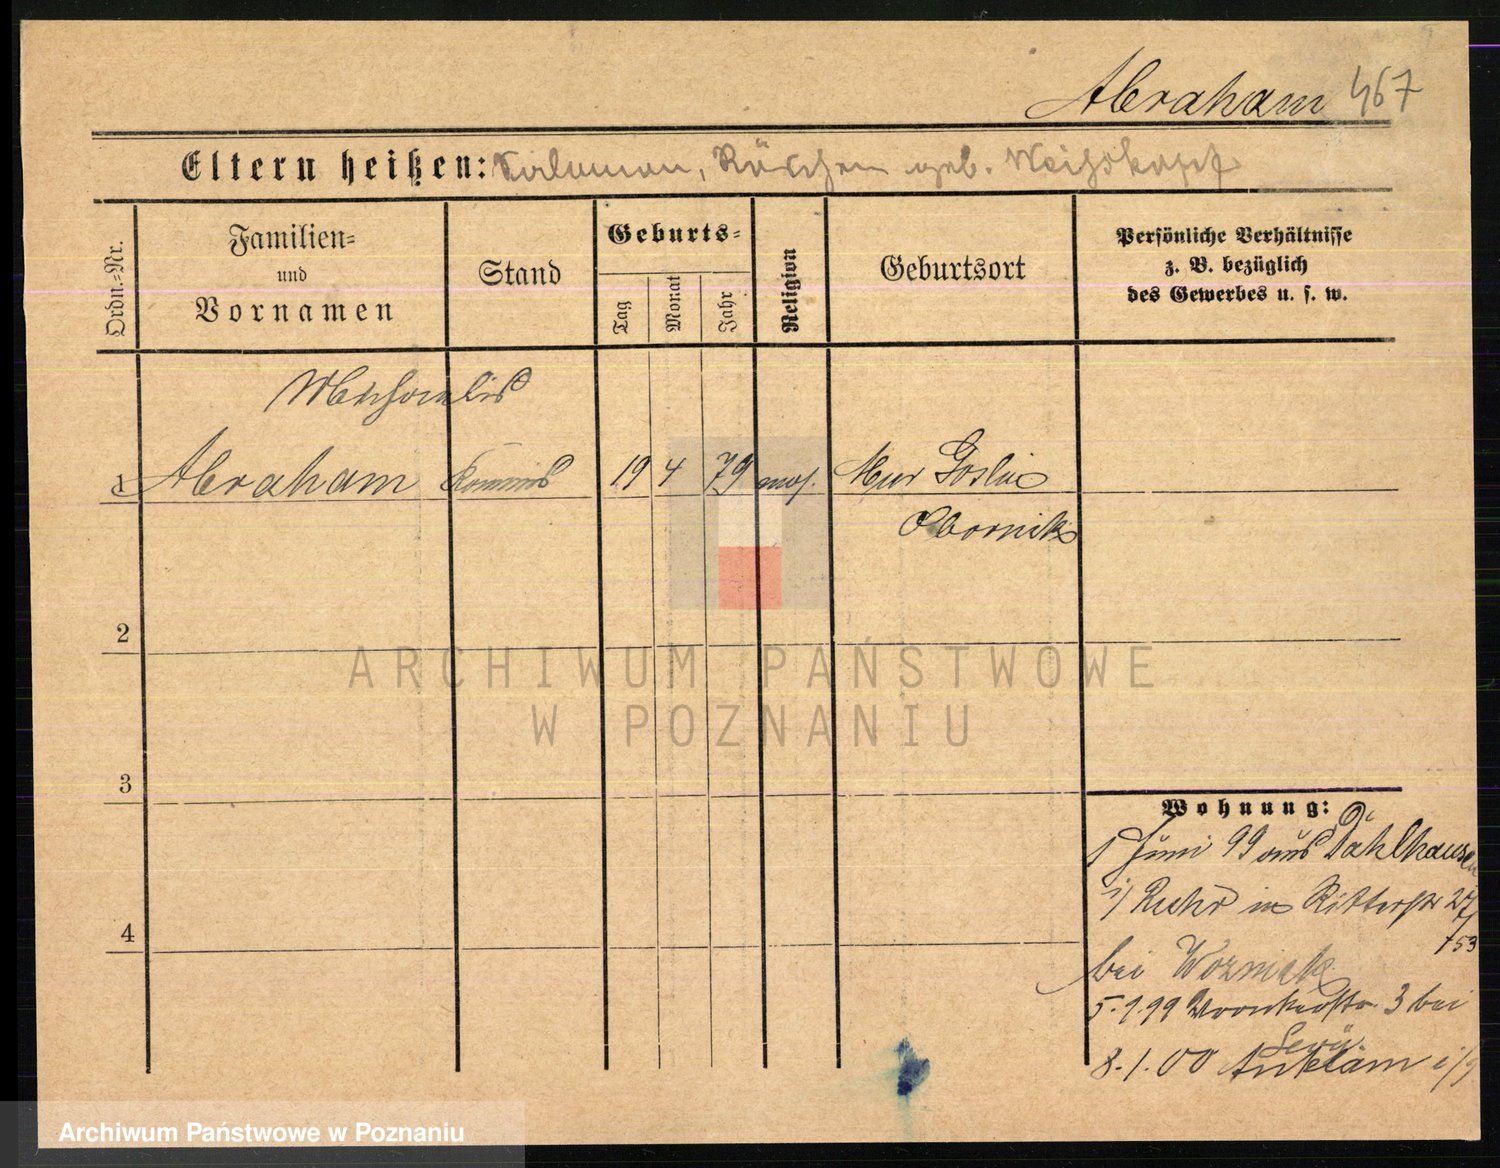 Abraham 467
Eltern heißen: Salomon, Röschen geb. Weißkopf
Ordn.-Nr.
Familien-
und
Vornamen
Stand
Geburts-
Tag
Monat
Jahr
Religion
Geburtsort
Persönliche Verhältnisse
z. B. bezüglich
des Gewerbes u. s. w.
1 Abraham Kommis 19 4 79 mos. Mur Goslin
Obornik
2
3
4
Wohnung:
1 Juni 99 aus Dahlhausen
a/ Ruhr in Ritterstr 27
bei Wozniak
5. 9.99 Wronkerstr. 3 bei
Levy.
8.1.00 Anklam
ARCHIWUM PAŃSTWOWE
W POZNANIU
Archiwum Państwowe w Poznaniu